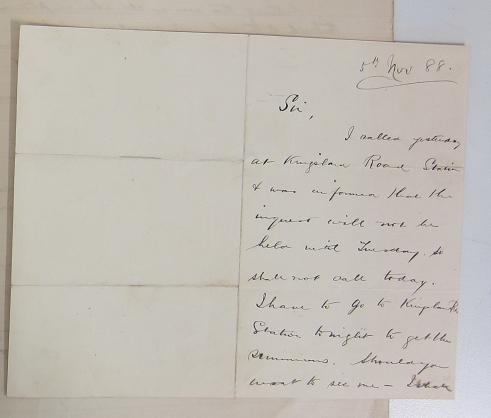 5th Nov 88.
Sir,
I called yesterday
at Kingsland Road Station
& was informed that the
inquest will not be
held until Tuesday. so
shall not call today.
I have to go to Kingsland Rd
Station tonight to get the
summons. Should you
want to see me –